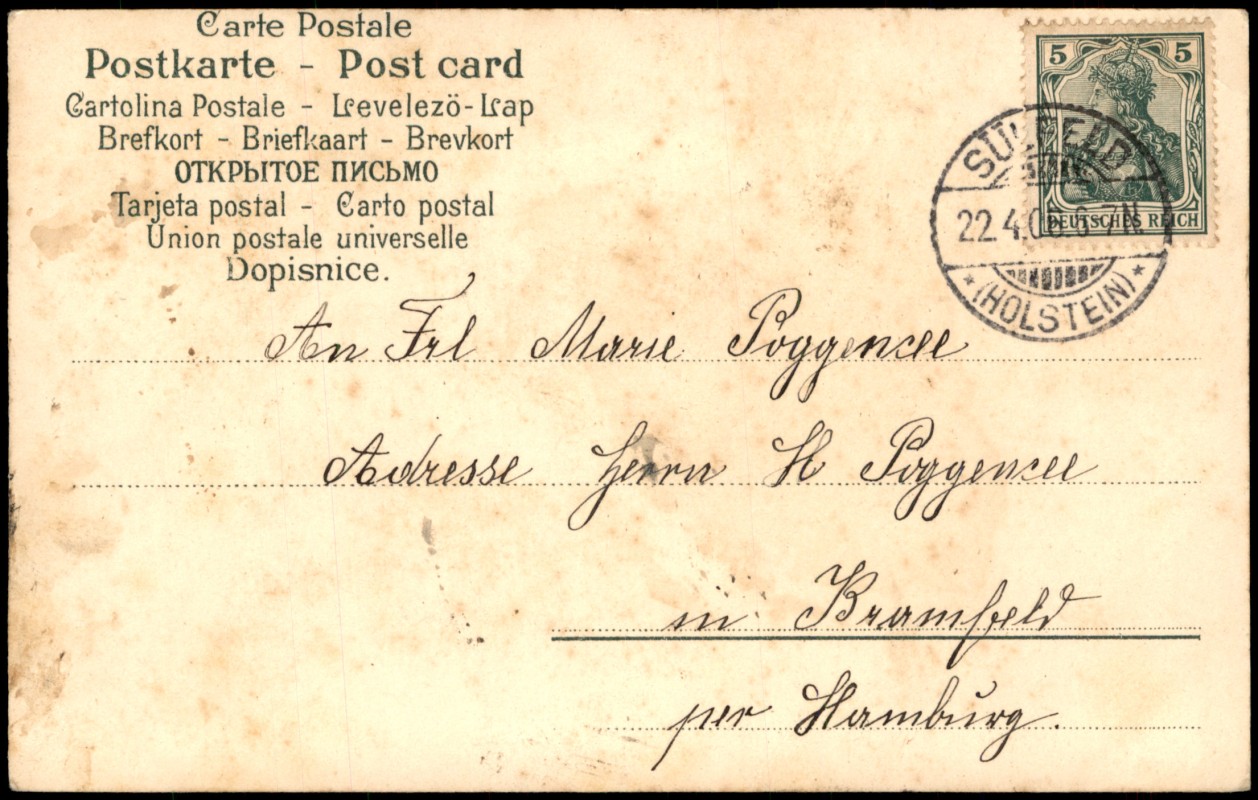 Carte Postale
Postkarte - Post card
Cartolina Postale - Levelezö-Lap
Brefkort - Briefkaart - Brevkort
ОТКРЫТОЕ ПИСЬМО
Tarjeta postal - Carto postal
Union postale universelle
Dopisnice.
5 5
DEUTSCHES REICH
SÜLFELD
22.4.06.
7N.
* (HOLSTEIN) *
An Frl Marie Poggensee
Adresse Herrn H Poggensee
in Bramfeld
per Hamburg.